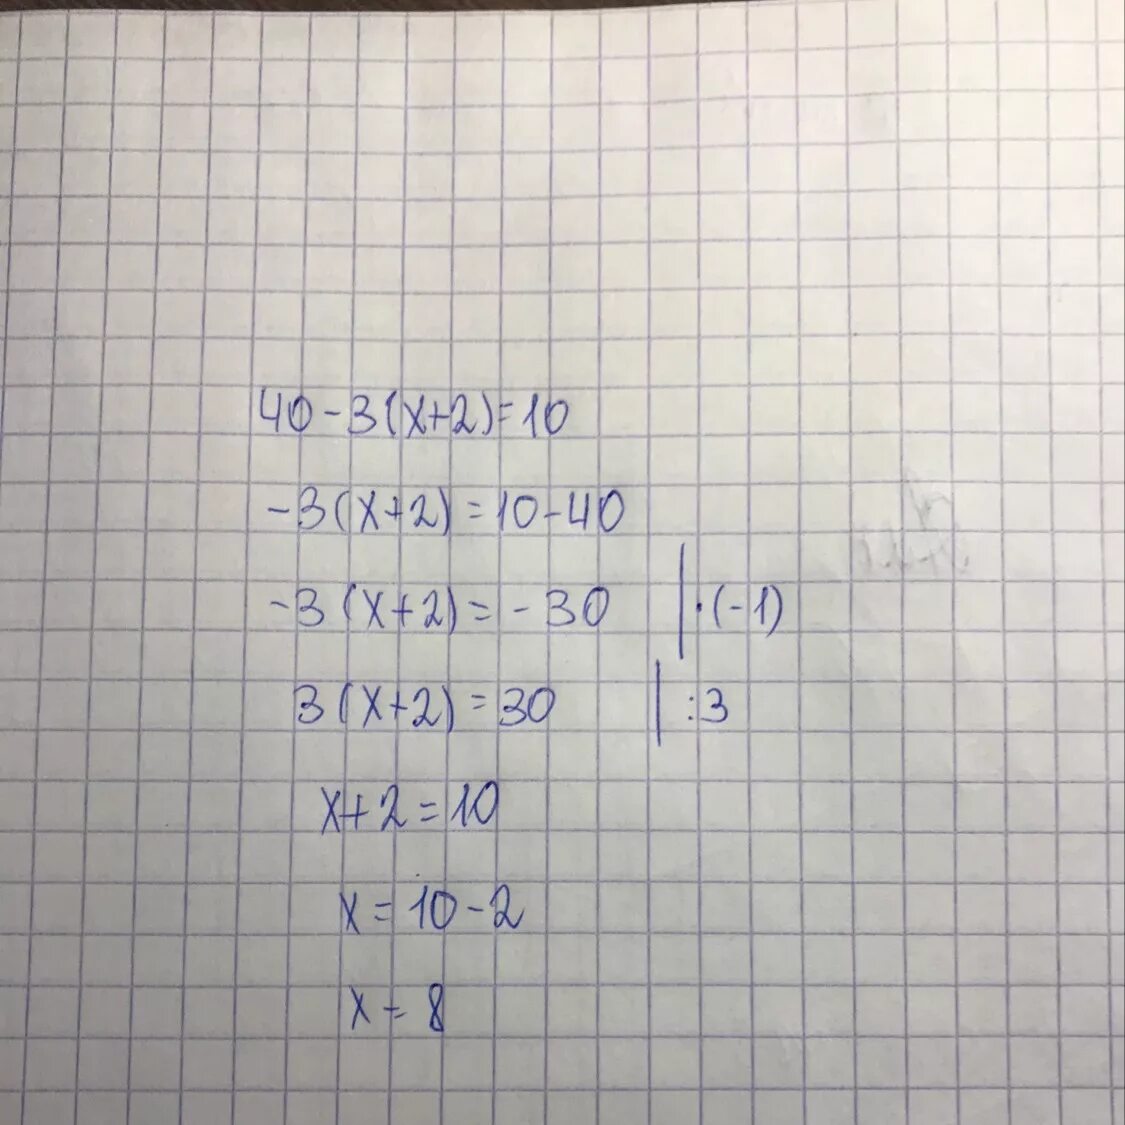 40-3(x+2)=10
-3(x+2)=10-40
-3(x+2)=-30 |·(-1)
3(x+2)=30 |:3
x+2=10
x=10-2
x=8